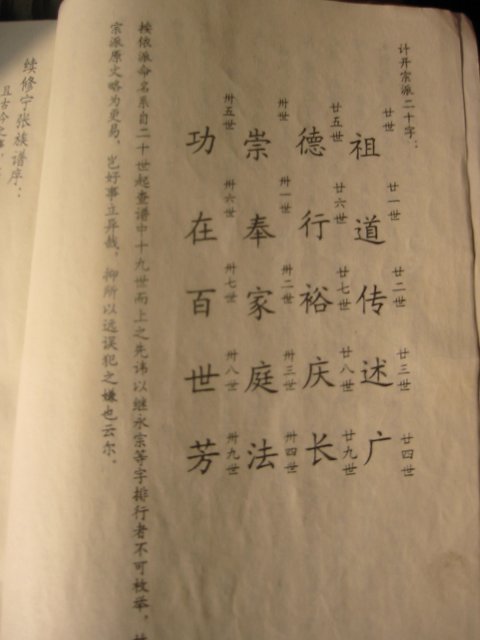 计开宗派二十字：
廿世 祖 廿一世 道 廿二世 传 廿三世 述 廿四世 广
廿五世 德 廿六世 行 廿七世 裕 廿八世 庆 廿九世 长
卅世 崇 卅一世 奉 卅二世 家 卅三世 庭 卅四世 法
卅五世 功 卅六世 在 卅七世 百 卅八世 世 卅九世 芳
按依派命名系自二十世起查谱中十九世而上之先讳以继永宗等字排行者不可枚举，
宗派原文略为更易，岂好事立异哉，抑所以远误犯之嫌也云尔．
续修宁张族谱序：
且古今之事